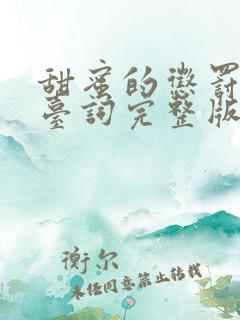 甜蜜的懲罰
臺詞完整版
衡尔
未经同意禁止转载